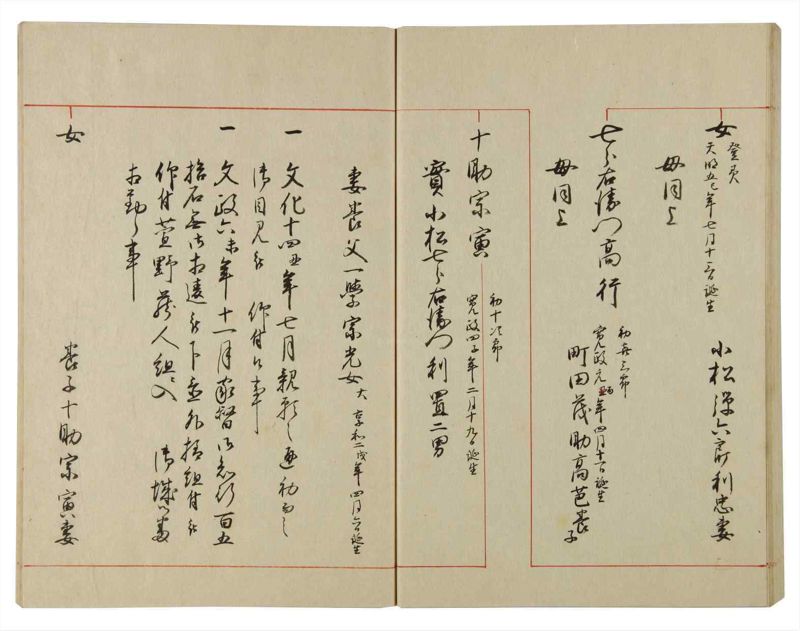 女
登美
天明五巳年七月十一日誕生
小松弾六郎利忠妻
母同上
七郎右衛門高行
初喜三郎
寛政元酉年四月十一日誕生
町田茂助高芭養子
母同上
十助宗寅
初十次郎
寛政四子年二月十九日誕生
實小松七郎右衛門利置二男
妻養父一學宗光女
大 享和二戌年四月六日誕生
一 文化十四丑年七月親類之通初而之
御目見被 仰付候事
一 文政六未年十一月家督御知行百五
拾石無御相違被下置外様組付被
仰付萱野藤人組江入 御城番
相勤候事
養子十助宗寅妻
女